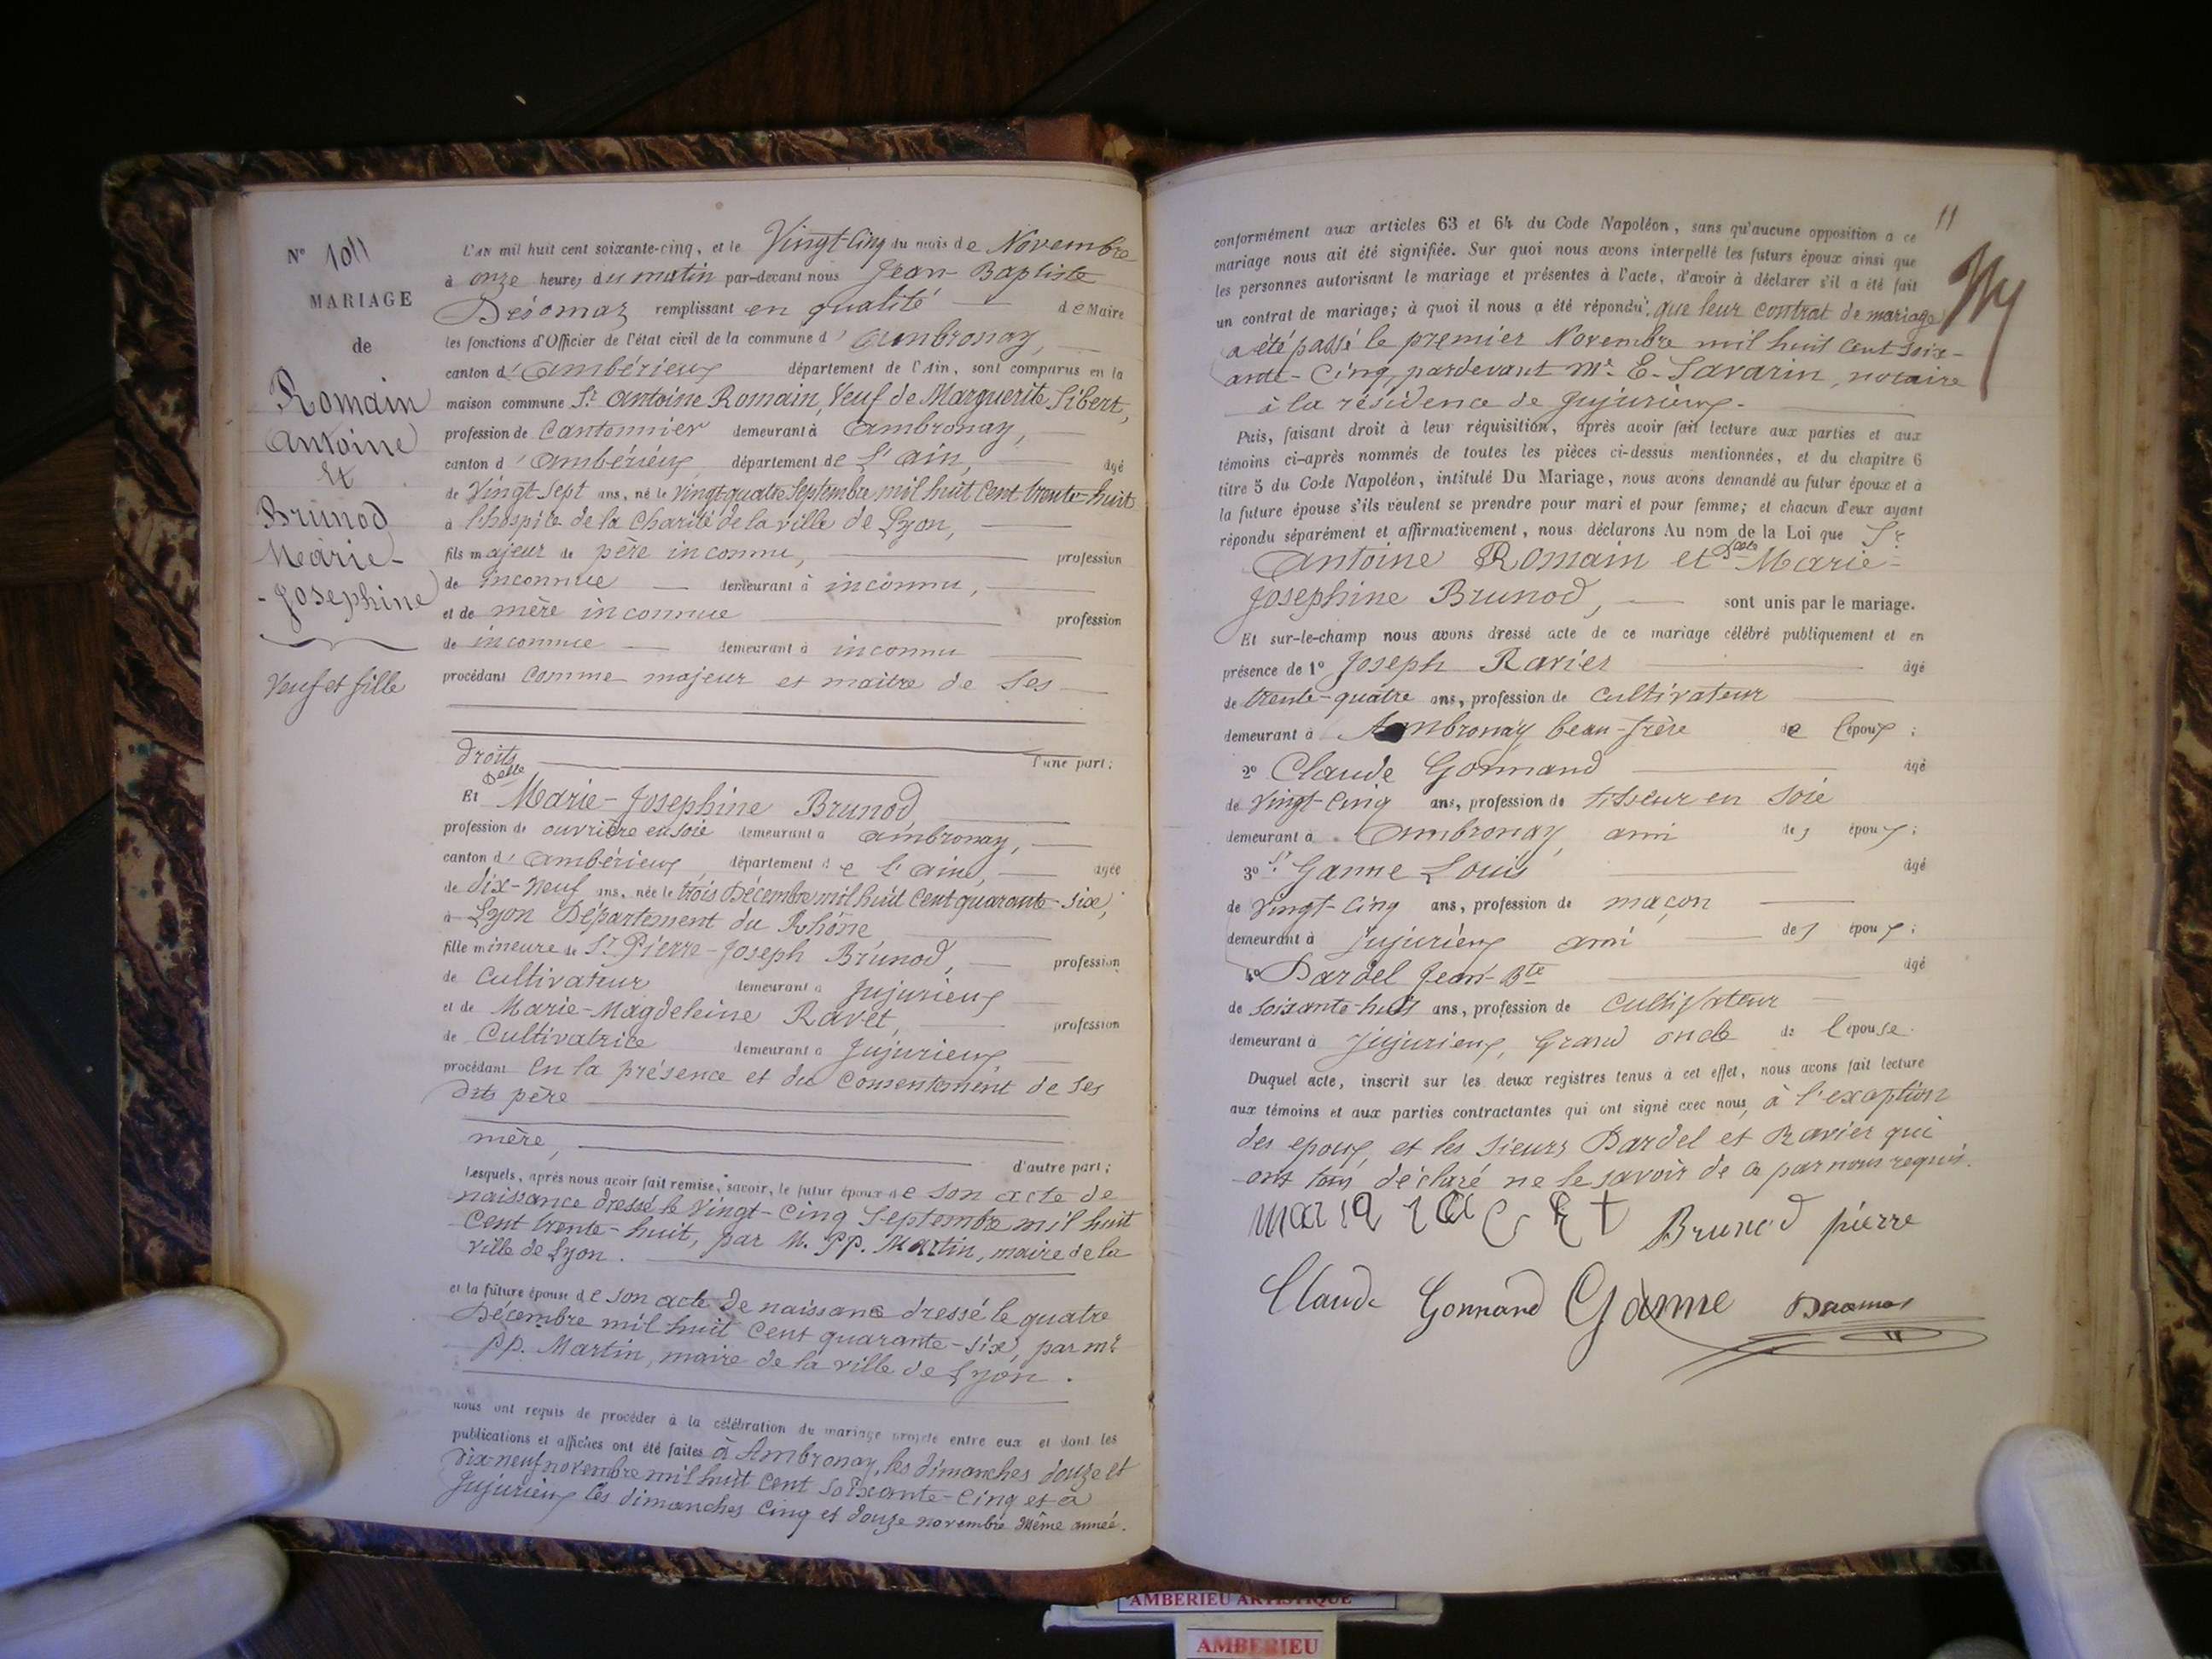 N° 10
MARIAGE
de
Romain
Antoine
et
Brunod
Marie-
-Josephine
Veuf et fille
L'AN mil huit cent soixante-cinq, et le Vingt-Cinq du mois de Novembre
à onze heures du matin par-devant nous Jean-Baptiste
Désomaz remplissant en qualité de Maire
les fonctions d'Officier de l'état civil de la commune d'Ambronay,
canton d'Ambérieux département de l'Ain, sont comparus en la
maison commune Sr Antoine Romain, Veuf de Marguerite Sibert,
profession de Cantonnier demeurant à Ambronay,
canton d'Ambérieux département de L'ain, âgé
de Vingt Sept ans, né le vingt-quatre Septembre mil huit Cent trente-huit
à l'hospice de la Charité de la ville de Lyon,
fils majeur de père inconnu, profession
de inconnue demeurant à inconnu,
et de mère inconnue profession
de inconnue demeurant à inconnu
procédant comme majeur et maître de ses
droits l'une part;
Et Delle Marie-Josephine Brunod
profession de ouvrière en soie demeurant à ambronay,
canton d'Ambérieux département de l'ain, âgée
de dix-neuf ans, née le trois Décembre mil huit Cent quarante-six,
à Lyon Département du Rhône
fille mineure de Sr Pierre-Joseph Brunod, profession
de Cultivateur demeurant à Jujurieux
et de Marie-Magdeleine Ravet, profession
de Cultivatrice demeurant à Jujurieux,
procédant en la présence et du Consentement de ses
dits père
mère, d'autre part;
Lesquels, après nous avoir fait remise, savoir, le futur époux de son acte de
naissance dressé le Vingt-Cinq Septembre mil huit
Cent trente-huit, par M. Pp. Martin, maire de la
ville de Lyon.
et la future épouse de son acte de naissance dressé le quatre
Décembre mil huit Cent quarante-six, par mr
pp. Martin, maire de la ville de Lyon.
nous ont requis de procéder à la célébration du mariage projeté entre eux et dont les
publications et affiches ont été faites à Ambronay, les dimanches douze et
dix-neuf novembre mil huit Cent Soixante-Cinq et a
Jujurieux les dimanches Cinq et douze novembre même année.
11
conformément aux articles 63 et 64 du Code Napoléon, sans qu'aucune opposition a ce
mariage nous ait été signifiée. Sur quoi nous avons interpellé les futurs époux ainsi que
les personnes autorisant le mariage et présentes à l'acte, d'avoir à déclarer s'il a été fait
un contrat de mariage; à quoi il nous a été répondu: que leur contrat de mariage
a été passé le premier Novembre mil huit Cent Soix-
ante-Cinq, pardevant Mr E. Savarin, notaire
à la résidence de Jujurieux.
Puis, faisant droit à leur réquisition, après avoir fait lecture aux parties et aux
témoins ci-après nommés de toutes les pièces ci-dessus mentionnées, et du chapitre 6
titre 5 du Code Napoléon, intitulé Du Mariage, nous avons demandé au futur époux et à
la future épouse s'ils veulent se prendre pour mari et pour femme; et chacun d'eux ayant
répondu séparément et affirmativement, nous déclarons Au nom de la Loi que Sr
Antoine Romain et Delle Marie-
Josephine Brunod, sont unis par le mariage.
Et sur-le-champ nous avons dressé acte de ce mariage célébré publiquement et en
présence de 1° Joseph Ravier âgé
de trente-quatre ans, profession de Cultivateur
demeurant à Ambronay beau-frère de l'époux;
2° Claude Gonnand âgé
de Vingt-Cinq ans, profession de tisseur en Soie
demeurant à Ambronay, ami des époux;
3° Sr Ganne Louis âgé
de Vingt-Cinq ans, profession de maçon
demeurant à Jujurieux ami des époux;
4° Dardel Jean-Bte âgé
de soixante-huit ans, profession de Cultivateur
demeurant à Jujurieux, Grand oncle de l'épouse.
Duquel acte, inscrit sur les deux registres tenus à cet effet, nous avons fait lecture
aux témoins et aux parties contractantes qui ont signé avec nous, à l'exaption
des epoux, et les Sieurs Dardel et Ravier qui
ont tous déclaré ne le savoir de ce par nous requis.
Brunod pierre
Claude Gonnand Ganne
AMBERIEU ARTISTIQUE
AMBERIEU